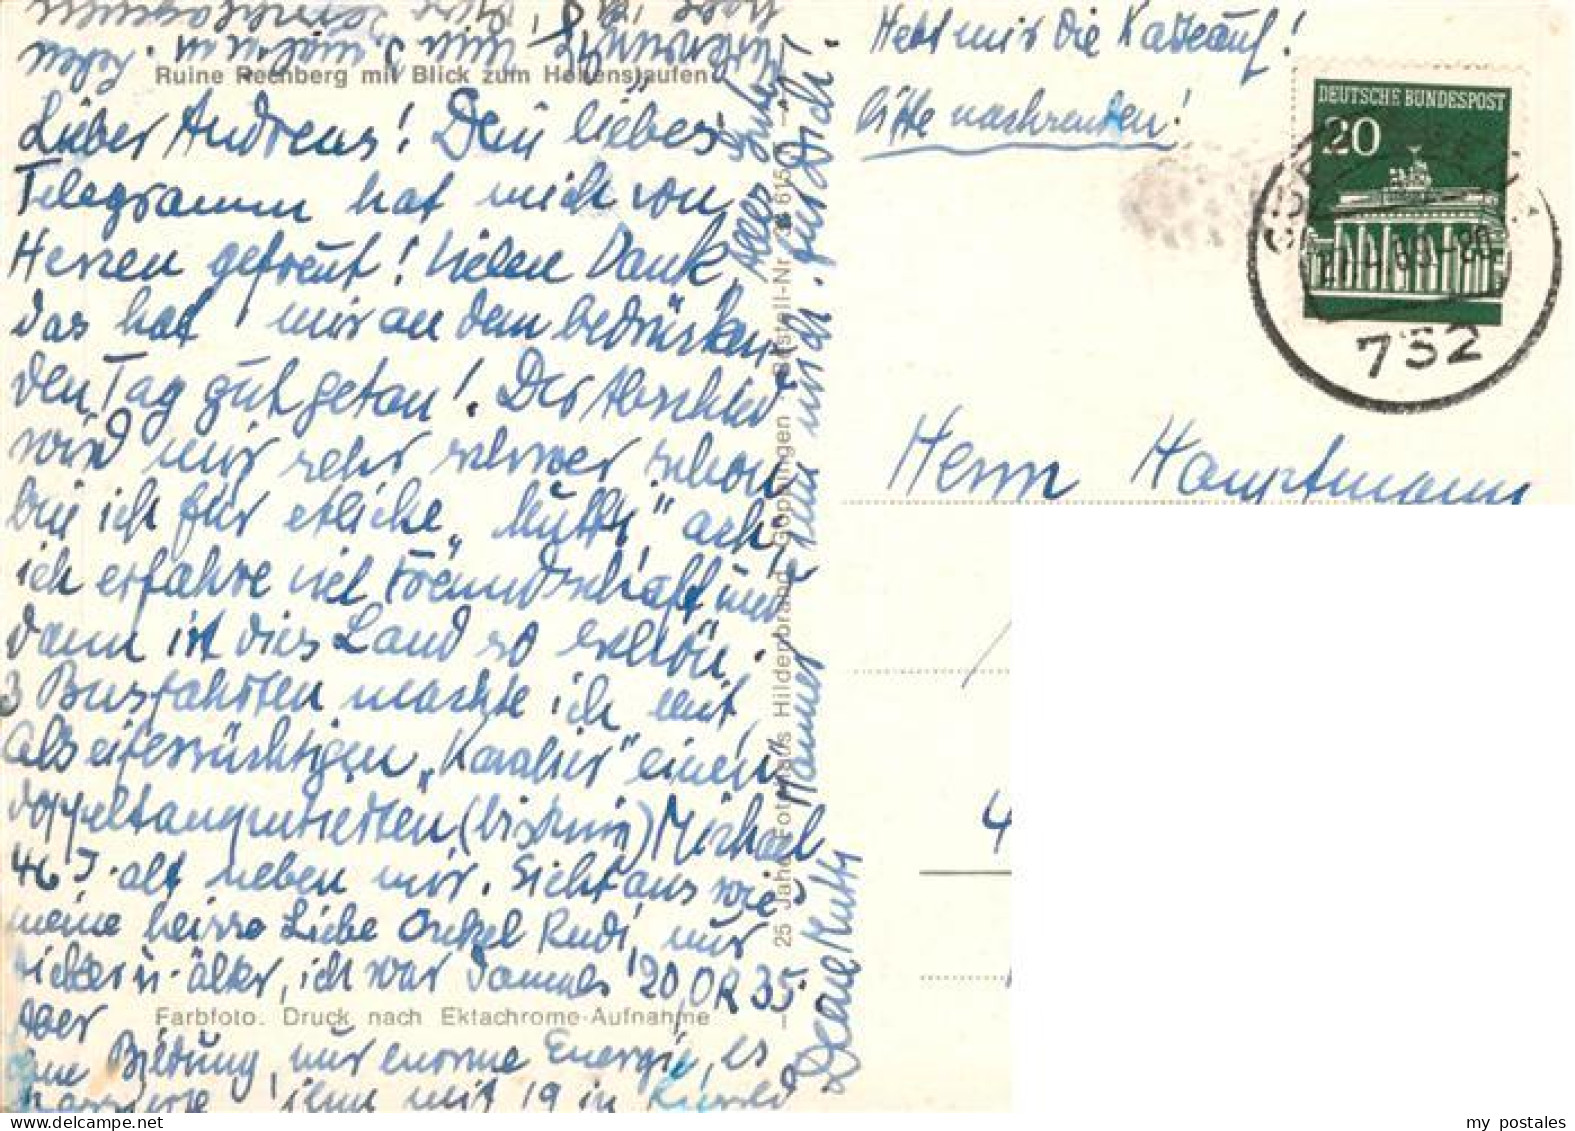 Ruine Rechberg mit Blick zum Hohenstaufen
Lieber Andreas! Dein liebes
Telegramm hat mich von
Herzen gefreut! Vielen Dank,
das hat mir an dem bedrücken
den Tag gut getan! Der Abschied
wird mir sehr schwer schon
bin ich für etliche „Mutti" ach,
ich erfahre viel Freundschaft und
dann ist dies Land so schön.
3 Busfahrten machte ich mit,
als eifersüchtigen „Kavalier" einen
doppeltamputierten, (bis Knie) Michael
46 J. alt neben mir. Sieht aus wie
meine heisse Liebe Onkel Rudi, nur
dicker u. älter, ich war damals 20, OR 35
Aber
Farbfoto. Druck nach Ektachrome-Aufnahme
Bildung, nur enorme Energie, es
ihm mit 19 in
25 Jahre Fotohaus Hildenbrand Göppingen Bestell-Nr.
Alles
für Dich!
Deine Mutti
Hebt mir die Karte auf!
bitte nachsenden!
DEUTSCHE BUNDESPOST
20
752
Herrn Hauptmann
4
my postales